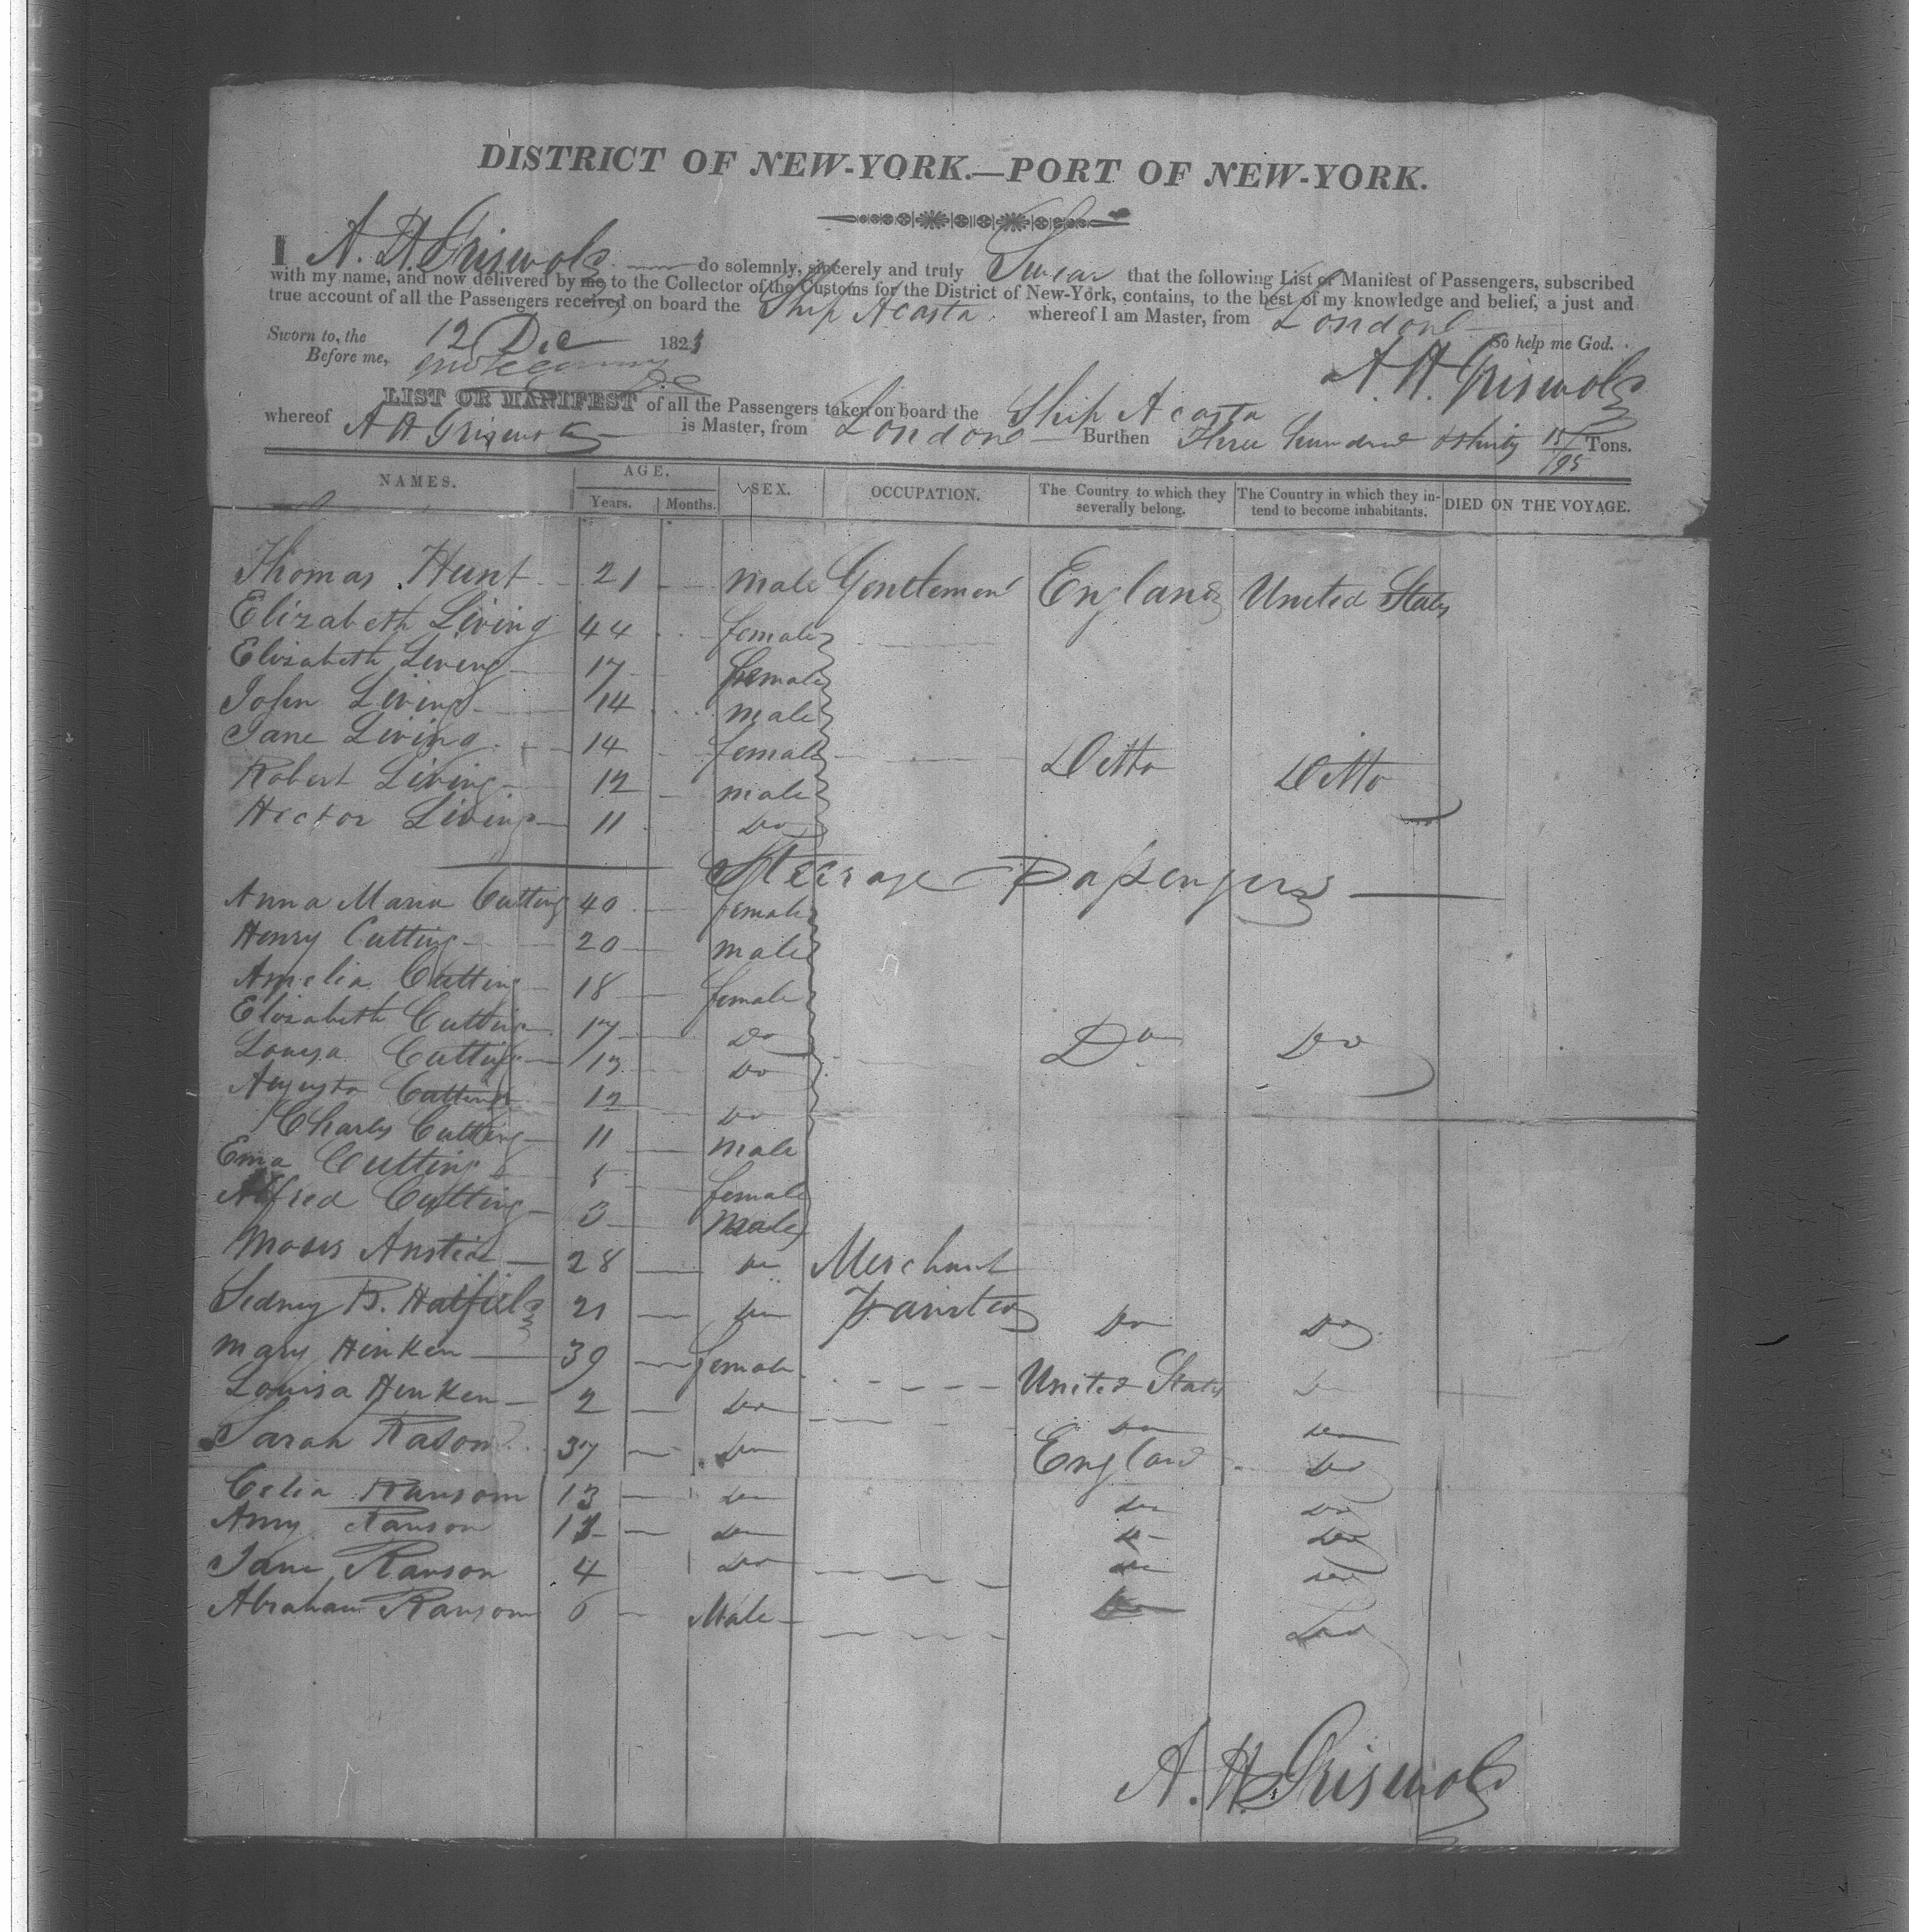 DISTRICT OF NEW-YORK.—PORT OF NEW-YORK.
I A. H. Griswold do solemnly, sincerely and truly Swear that the following List or Manifest of Passengers, subscribed
with my name, and now delivered by me to the Collector of the Customs for the District of New-York, contains, to the best of my knowledge and belief, a just and
true account of all the Passengers received on board the Ship Acasta whereof I am Master, from London
Sworn to, the 12 Dec 1823 So help me God.
Before me,
A. H. Griswold
LIST OR MANIFEST of all the Passengers taken on board the Ship Acasta
whereof A H Griswold is Master, from London Burthen Three hundred & thirty 15/95 Tons.
NAMES. AGE. Years. Months. SEX. OCCUPATION. The Country to which they severally belong. The Country in which they intend to become inhabitants. DIED ON THE VOYAGE.
Thomas Hunt 21 male Gentleman England United States
Elizabeth Living 44 female
Elizabeth Living 17 female
John Living 14 male
Jane Living 14 female Ditto Ditto
Robert Living 12 male
Hector Living 11 Do
Steerage Passengers
Anna Maria Cutting 40 female
Henry Cutting 20 male
Amelia Cutting 18 female
Elizabeth Cutting 17 Do Do Do
Louisa Cutting 13 Do
Augusta Cutting 12 Do
Charles Cutting 11 male
Ema Cutting 5 female
Alfred Cutting 3 Male
Moses Anstice 28 Do Merchant
Sedney B. Hatfield 21 Do Painter Do Do
Mary Hinken 39 female United States Do
Louisa Hinken 2 Do Do Do
Sarah Rason 37 Do England Do
Celia Ransom 13 Do Do Do
Amy Ranson 13 Do Do Do
Jane Ranson 4 Do Do Do
Abraham Ransom 6 Male Do Do
A. H. Griswold